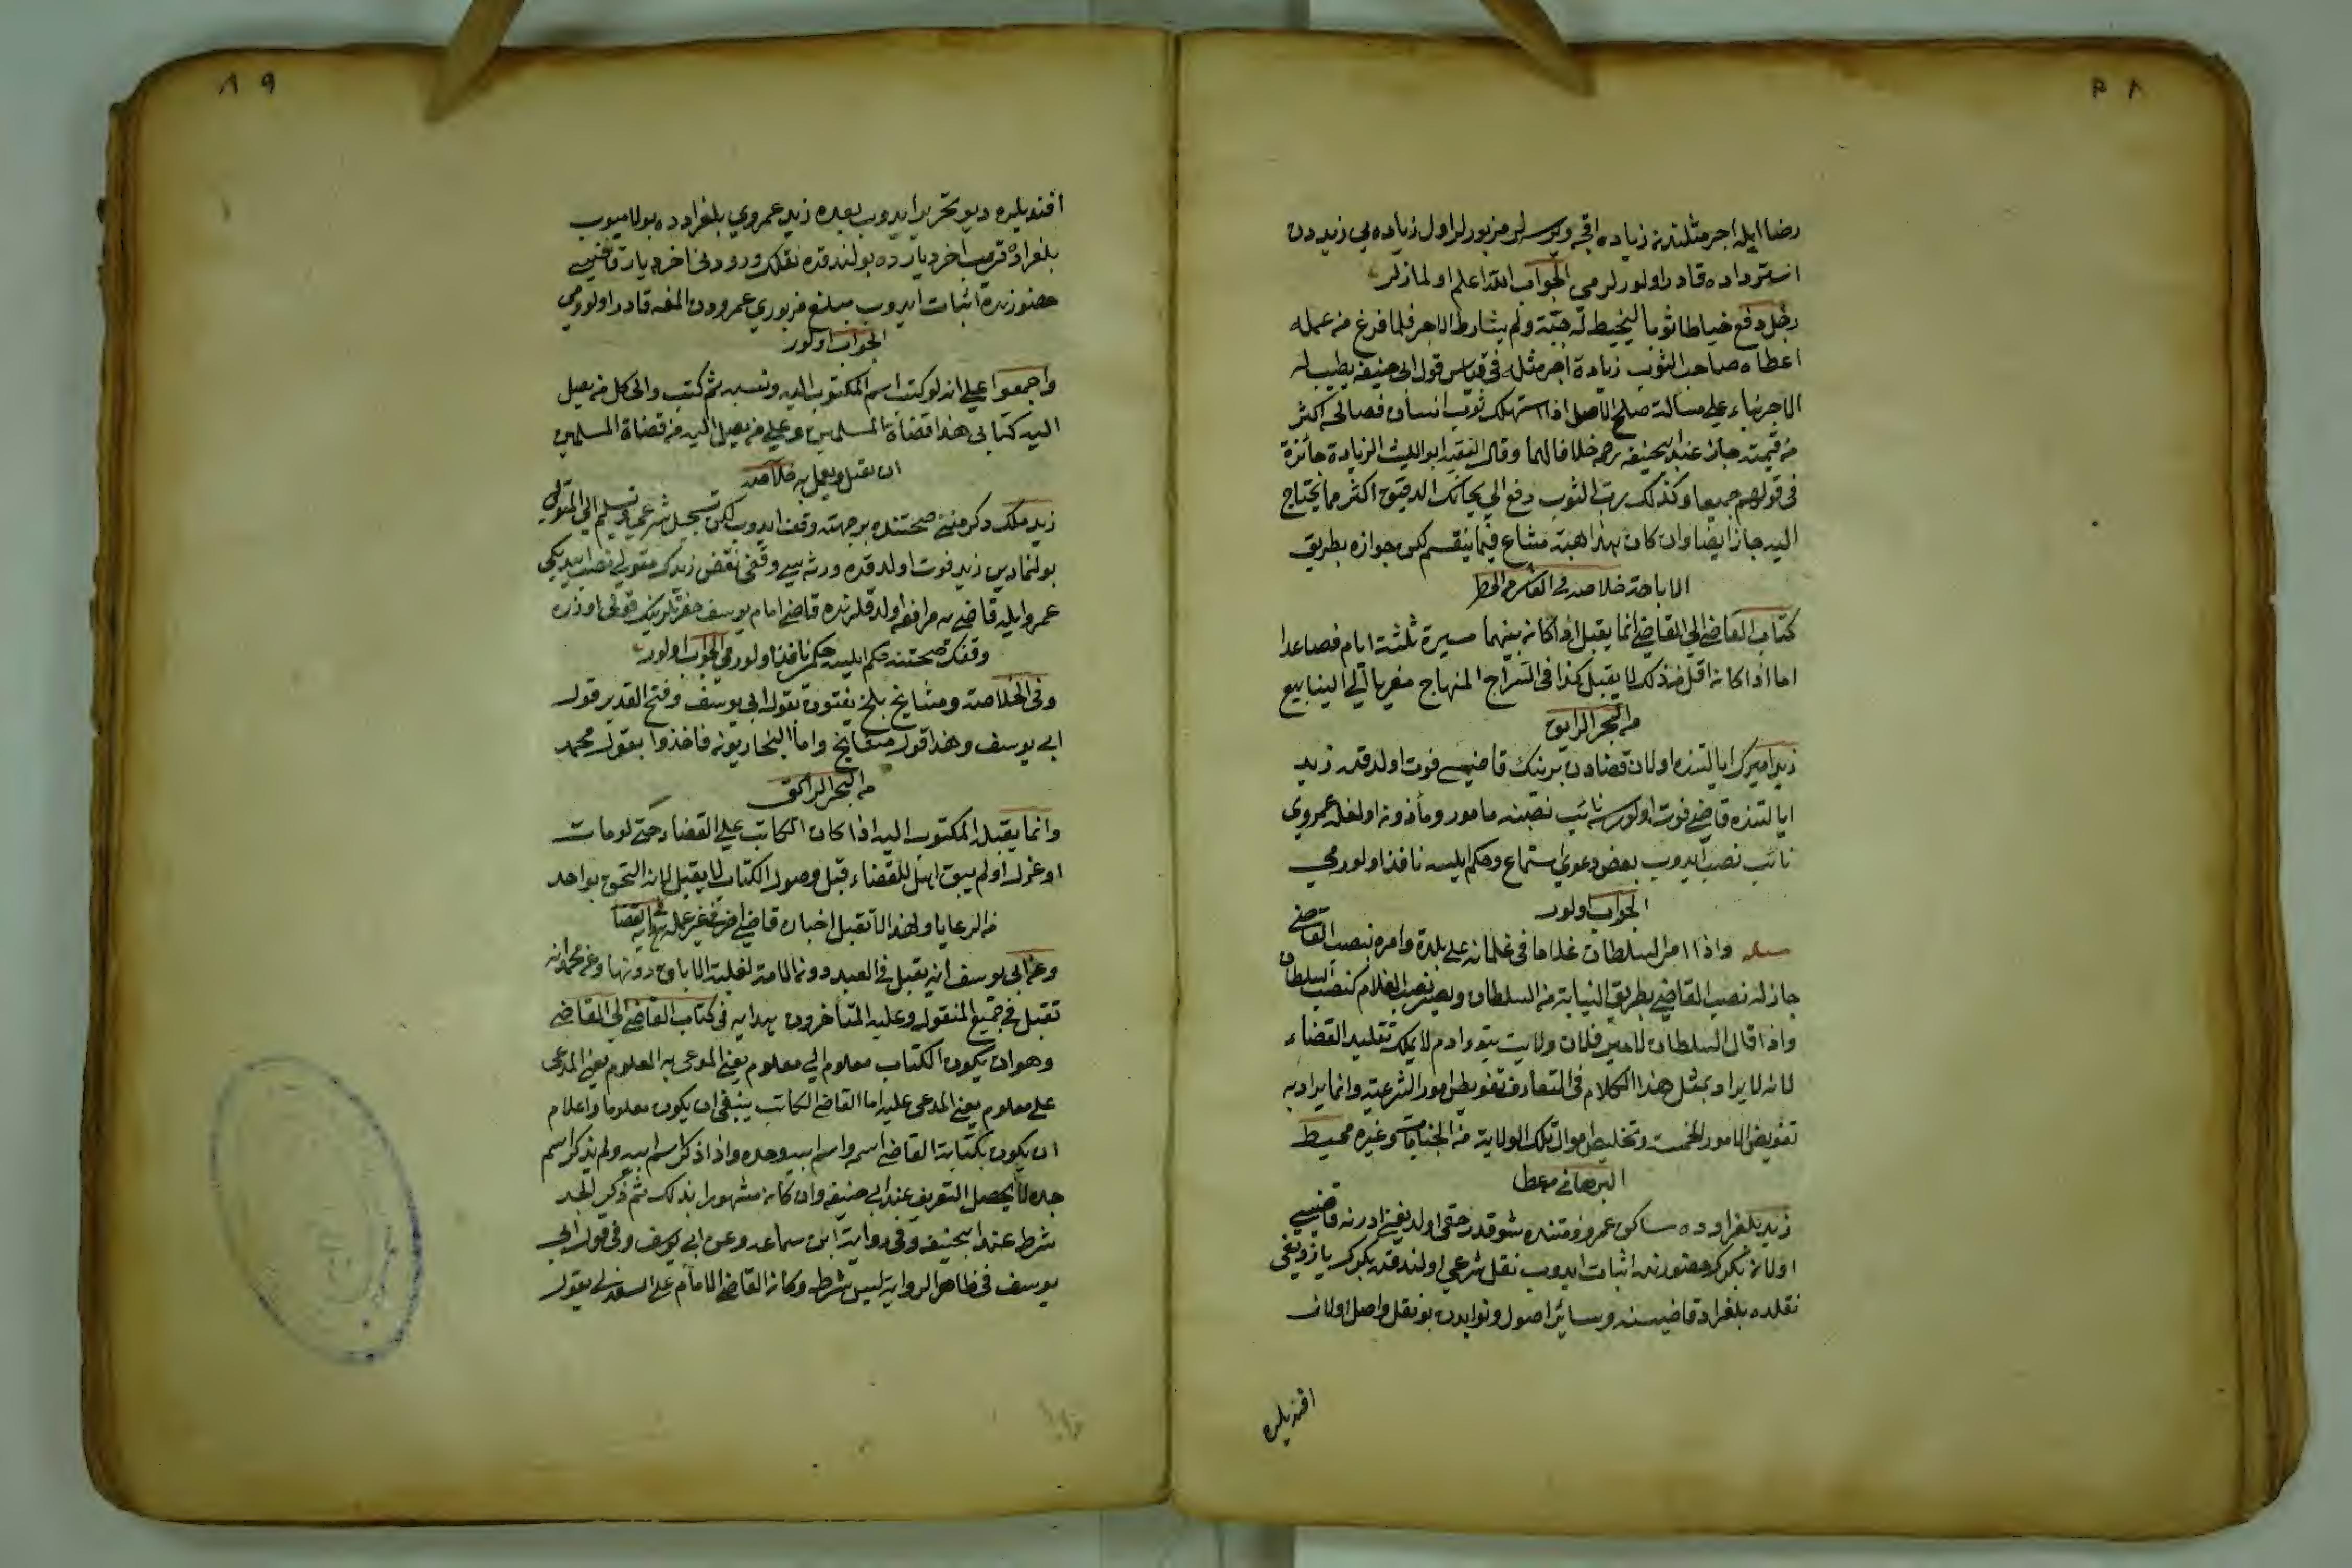 رضا ايله اجر مثلندن زياده اقچه ويرسلر مزبورلر اول زياده يي زيددن
استرداده قادر اولورلر مى الجواب الله اعلم اولمازلر
رجل دفع خياطا ثوبا ليخيط له جبّة ولم يشارط الاجر فلما فرغ من عمله
اعطاه صاحب الثوب زيادة اجر مثله ففى قياس قول ابى حنيفه يطيب له
الاجر بناء على مسألة صلح الاصل اذا استهلك ثوب انسان فصالحه اكثر
من قيمته جاز عند ابيحنيفه رحمه خلافا لهما وقال الفقيه ابو الليث الزيادة جائزة
فى قولهم جميعا وكذلك رب الثوب دفع الى حائك الدقيق اكثر مما يحتاج
اليه جاز ايضا وان كان هذا هبة مشاع فيما ينقسم لكن جوازه بطريق
الاباحة خلاصه فى
كتاب القاضى الى القاضى انما يقبل اذا كان بينهما مسيرة ثلثة ايام فصاعدا
اما اذا كان اقل من ذلك لا يقبل كذا فى السراج المنهاج معزيا الى الينابيع
من البحر الرايق
زيد اميرك ايالتنده اولان قضادن برينك قاضيسى فوت اولدقده زيد
ايالتنده قاضى فوت اولورسه نائب نصبنه مامور ومأذون اولمغله عمروى
نائب نصب ايدوب بعض دعوى استماع وحكم ايلسه نافذ اولور مى
الجواب اولور
مسئله واذا امر السلطان غلاما فى غلمانه على بلدة وامره بنصب القاضى
جاز له نصب القاضى بطريق النيابة من السلطان ويصير نصب الغلام كنصب السلطان
واذا قال السلطان لامير فلان ولايت بتو دادم لا يملك تقليد القضاء
لانه لا يراد بمثل هذا الكلام فى المتعارف تفويض امور الشرعية وانما يراد به
تفويض الامور وتخليط اموال تلك الولاية من الجنايات وغيره محيط
البرهانى
زيد بلغرادده ساكن عمرو ذمتنده شو قدر حقى اولديغنى ادرنه قاضيسى
اولان بكرك حضورنده اثبات ايدوب نقل شرعى اولندقده بكر كه يازديغى
نقلده بلغراد قاضيسنه وسائر اصول ونوابدن بو نقل واصل اولان
افنديلره
افنديلره ديو تحرير ايدوب بعده زيد عمروي بلغرادده بولاميوب
بلغراده قريب اخر ديارده بولندقده نقلك ورودنى اخر ديار قاضيسى
حضورنده اثبات ايدوب مبلغ مزبوري عمرودن المغه قادر اولورمى
الجواب اولور
واجمعوا على انه لو كتب اسم المكتوب اليه ونسبه ثم كتب والى كل من يصل
اليه كتابى هذا قضاة المسلمين وعلى من يصل اليه من قضاة المسلمين
ان يقبل ويعمل به خلاصه
زيد ملك دكرمننى صحتنده بر جهته وقف ايدوب لكن تسجيل شرعى وتسليم الى المتولى
بولنمادين زيد فوت اولدقده ورثه سى وقفى نقض زيدك متولى نصب ايتديكى
عمرو ايله قاضى يه مرافعه اولدقلرنده قاضى امام يوسف حضرتلرينك قولى اوزره
وقفك صحتنه حكم ايلسه حكم نافذ اولورمى الجواب اولور
وفى الخلاصة ومشايخ بلخ يفتون بقول ابى يوسف وفتح القدير قول
ابى يوسف وهذا قول مشايخ واما البخاريون فاخذوا بقول محمد
من البحر الرائق
وانما يقبل المكتوب اليه اذا كان الكاتب على القضاء حتى لو مات
او عزل او لم يبق اهل للقضاء قبل وصول الكتاب لا يقبل لانه التحق بواحد
من الرعايا ولهذا لا تقبل اخباره قاضيا اخر فى غير عمله
وعن ابى يوسف انه يقبل فى العبد دون الامة لغلبة الاباق دونها وعن محمد انه
تقبل فى جميع المنقول وعليه المتأخرون هدايه فى كتاب القاضى الى القاضى
وهو ان يكون الكتاب معلوم الى معلوم يعنى المدعى به المعلوم يعنى المدعى
على معلوم يعنى المدعى عليه اما القاضى الكاتب ينبغى ان يكون معلوما واعلام
ان يكون بكتابة القاضى اسمه واسم ابيه وجده واذا ذكر اسم ابيه ولم يذكر اسم
جده لا يحصل التعريف عند ابى حنيفه وان كان مشهورا بذلك ثم ذكر الجد
شرط عند ابيحنيفه وفى رواية ابن سماعه وعن ابى يوسف وفى قول ابى
يوسف فى ظاهر الرواية ليس بشرط وكان القاضى الامام على السغدى يقول